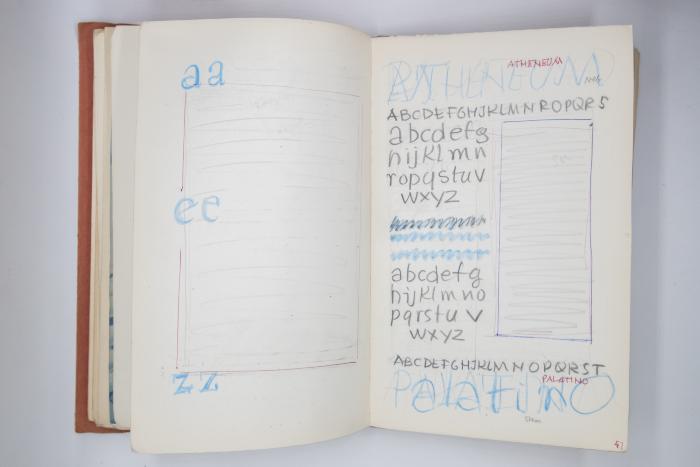 aa
ee
zz
ATHENEUM
ATHENEUM
ABCDEFGHJKLMNROPQRS
abcdefg
hijklmn
ropqstuv
wxyz
abcdefg
hijklmno
pqrstuv
wxyz
ABCDEFGHJKLMNOPQRST
PALATINO
Palatino